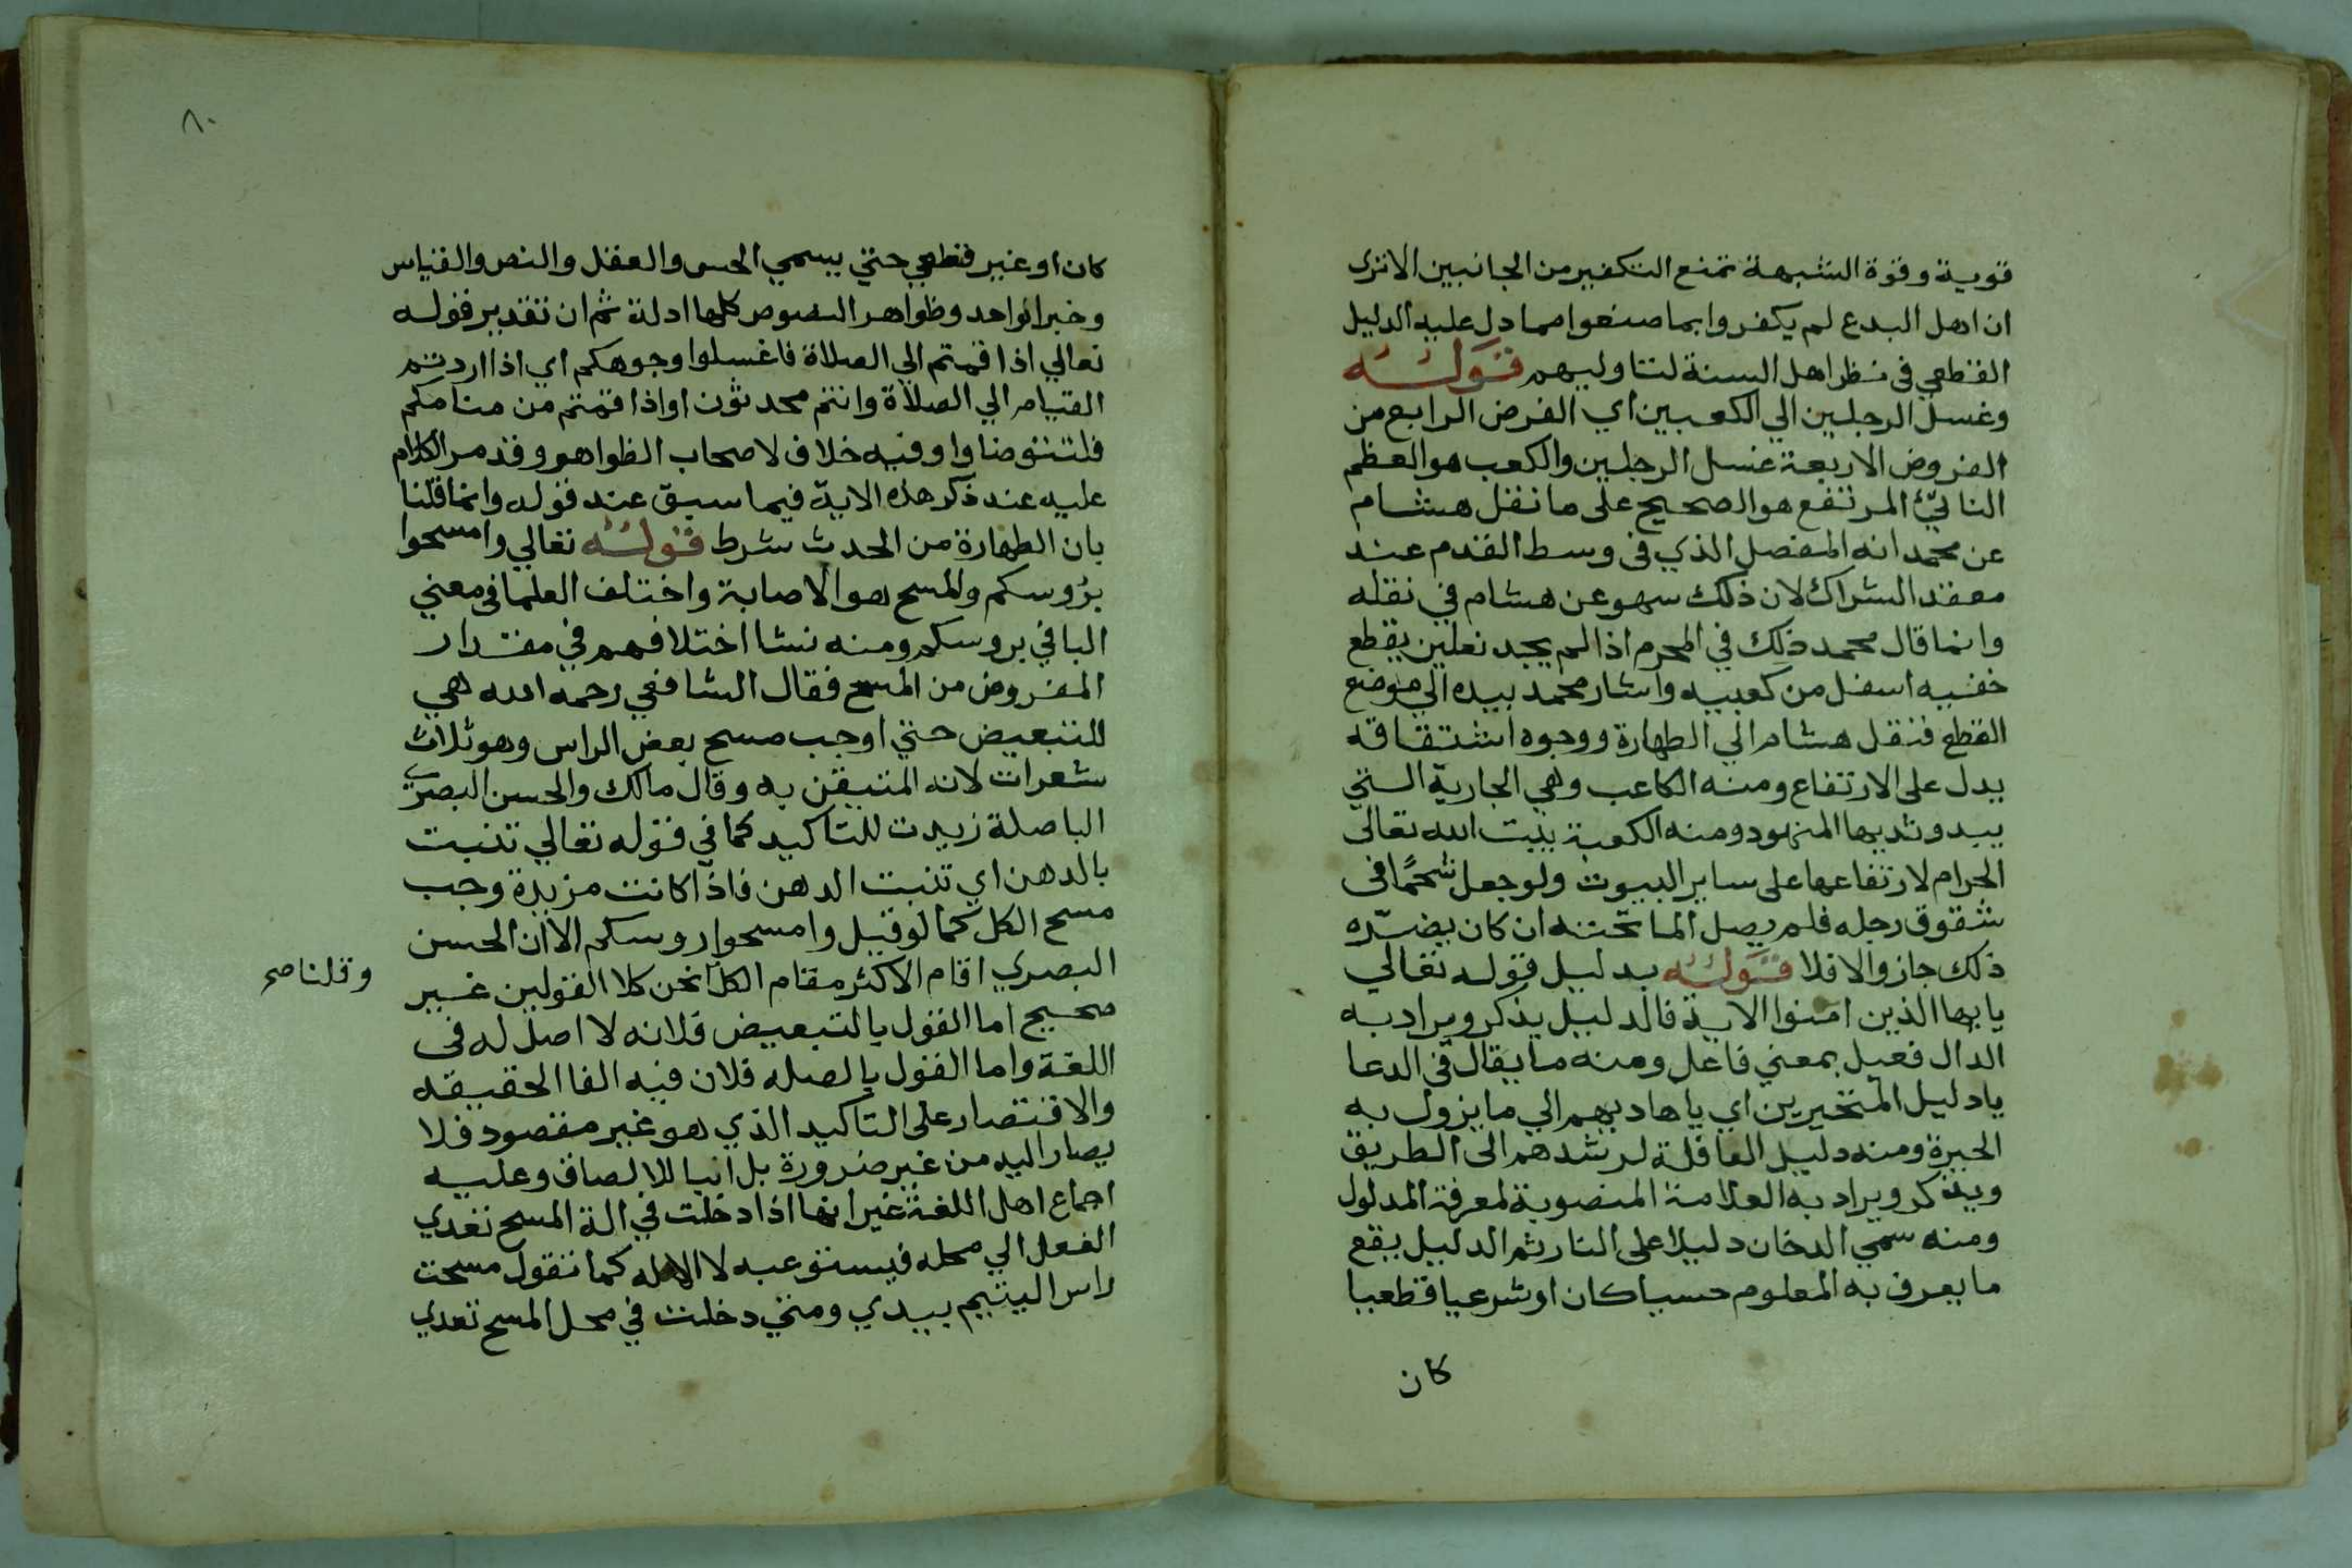 قوية وقوة الشبهة تمنع التكفير من الجانبين الا ترى
ان اهل البدع لم يكفروا بما صنعوا مما دل عليه الدليل
القطعي في نظر اهل السنة لتاوليهم قوله
وغسل الرجلين الي الكعبين اي الفرض الرابع من
الفروض الاربعة غسل الرجلين والكعب هو العظم
الناتئ المرتفع هو الصحيح على ما نقل هشام
عن محمد انه المفصل الذي في وسط القدم عند
معقد الشراك لان ذلك سهو عن هشام في نقله
وانما قال محمد ذلك في المحرم اذا لم يجد نعلين يقطع
خفيه اسفل من كعبيه واشار محمد بيده الي موضع
القطع فنقل هشام الي الطهارة ووجوه اشتقاقه
يدل على الارتفاع ومنه الكاعب وهي الجارية التي
يبدو ثديها المنهود ومنه الكعبة بيت الله تعالى
الحرام لارتفاعها على ساير البيوت ولو جعل شحمًا في
شقوق رجله فلم يصل الما تحتنه ان كان يضرّه
ذلك جاز والا فلا قوله بدليل قوله تعالي
يايها الذين امنوا الاية فالدليل يذكر ويراد به
الدال فعيل بمعني فاعل ومنه ما يقال في الدعا
يا دليل المتحيرين اي يا هاديهم الي ما يزول به
الحيرة ومنه دليل القافلة لمرشدهم الى الطريق
ويذكر ويراد به العلامة المنصوبة لمعرفة المدلول
ومنه سمي الدخان دليلا على النار ثم الدليل يقع
ما يعرف به المعلوم حسيا كان او شرعيا قطعيا
كان
٨٠
كان او غير قطعي حتي يسمي الحس والعقل والنص والقياس
وخبر الواحد وظواهر النصوص كلها ادلة ثم ان تقدير قوله
تعالي اذا قمتم الي الصلاة فاغسلوا وجوهكم اي اذا اردتم
القيام الي الصلاة وانتم محدثون او اذا قمتم من منامكم
فلتتوضاوا وفيه خلاف لاصحاب الظواهر وقد مر الكلام
عليه عند ذكر هذه الاية فيما سبق عند قوله وانما قلنا
بان الطهارة من الحدث شرط قوله تعالي وامسحوا
برُوسكم والمسح هو الاصابة واختلف العلما في معني
البا في بروسكم ومنه نشا اختلافهم في مقدار
المفروض من المسح فقال الشافعي رحمه الله هي
للتبعيض حتي اوجب مسح بعض الراس وهو ثلاث
شعرات لانه المتيقن به وقال مالك والحسن البصري
البا صلة زيدت للتاكيد كما في قوله تعالي تنبت
بالدهن اي تنبت الدهن فاذا كانت مزيدة وجب
مسح الكل كما لو قيل وامسحوا روسكم الا ان الحسن
البصري اقام الاكثر مقام الكل نحن كلا القولين غير
وقلنا صح
صحيح اما القول بالتبعيض فلانه لا اصل له في
اللغة واما القول بالصله فلان فيه الغا الحقيقه
والاقتصار على التاكيد الذي هو غير مقصود فلا
يصار اليه من غير ضرورة بل البا للالصاق وعليه
اجماع اهل اللغة غير انها اذا دخلت في الة المسح تعدي
الفعل الي محله فيستوعبه لا الاله كما تقول مسحت
راس اليتيم بيدي ومتي دخلت في محل المسح تعدي